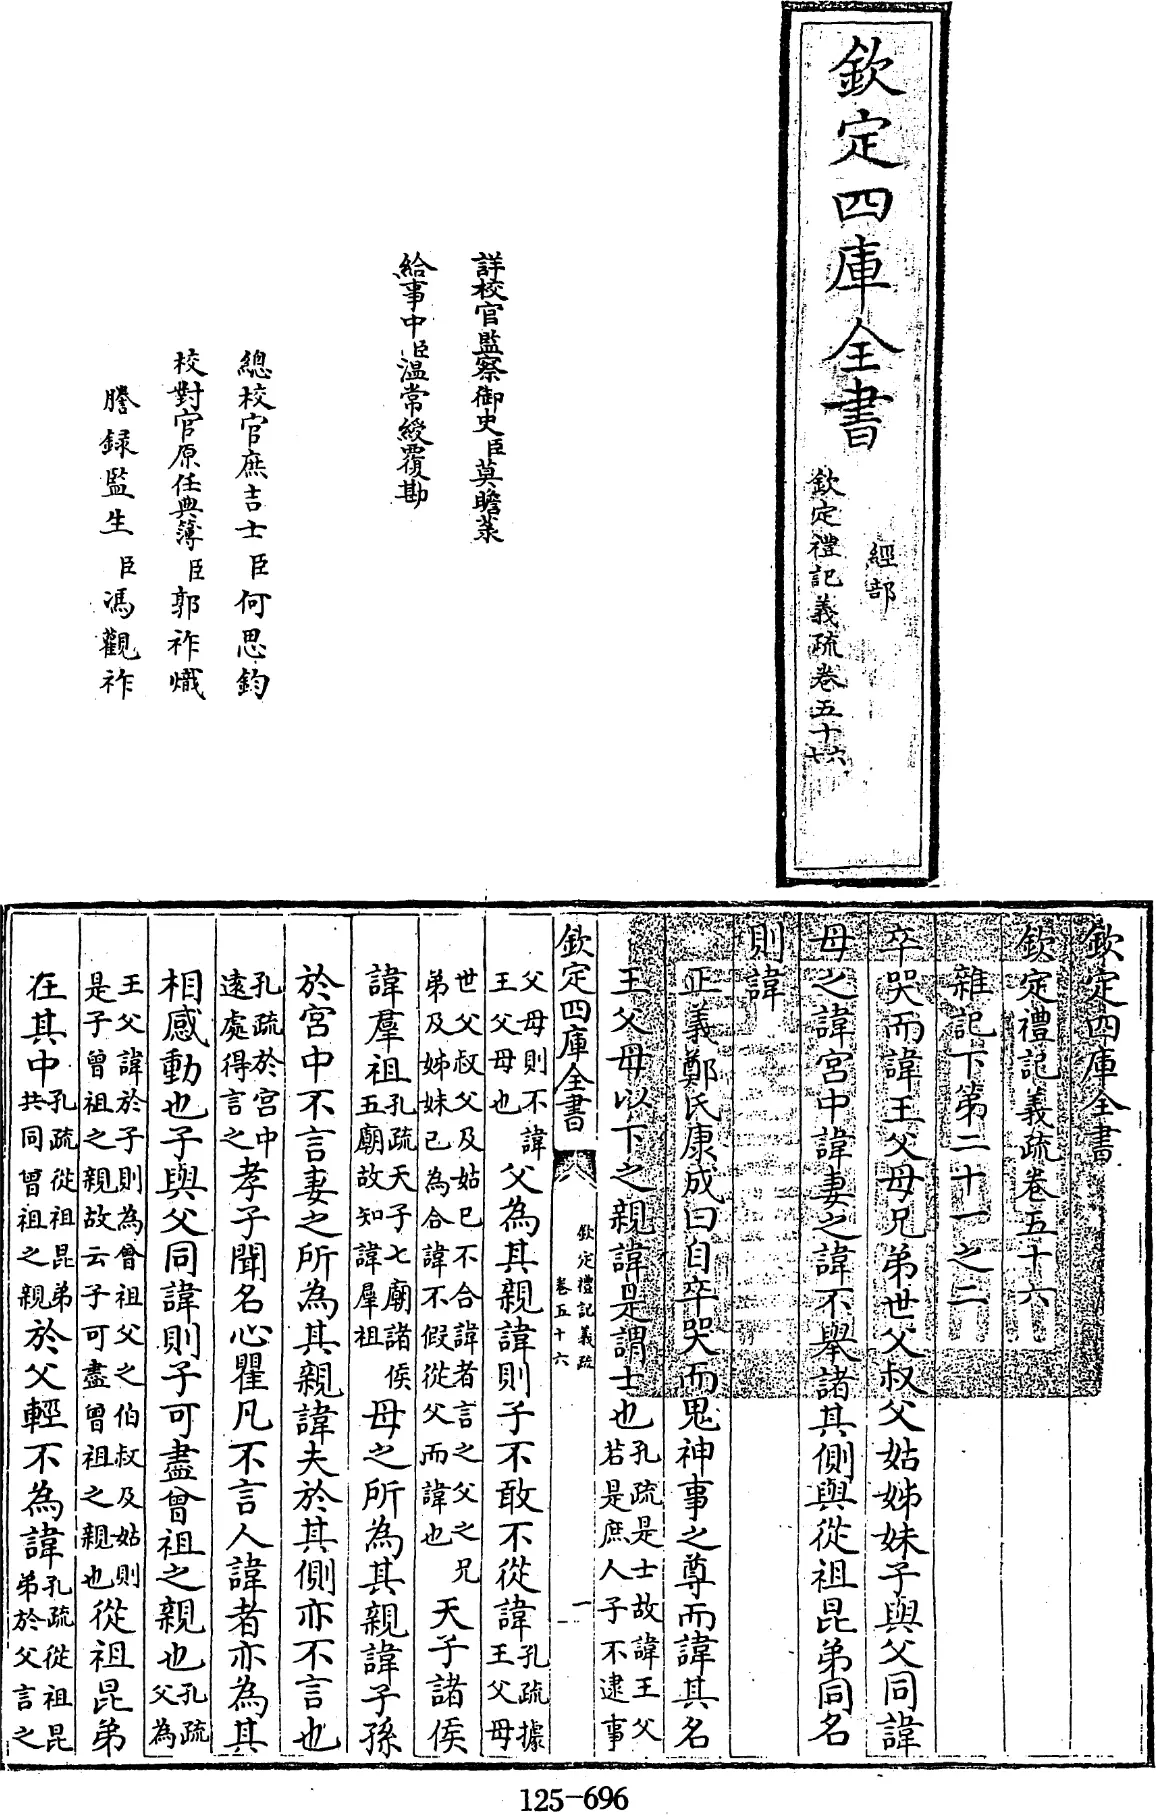 欽定四庫全書
經部
欽定禮記義疏卷五十六
詳校官監察御史臣莫瞻菉
給事中臣溫常綬覆勘
總校官庶吉士臣何思鈞
校對官原任典簿臣郭祚熾
謄錄監生臣馮觀祚
欽定四庫全書
欽定禮記義疏卷五十六
雜記下第二十一之二
卒哭而諱王父母兄弟世父叔父姑姊妹子與父同諱
母之諱宮中諱妻之諱不舉諸其側與從祖昆弟同名
則諱
正義鄭氏康成曰自卒哭而鬼神事之尊而諱其名
王父母以下之親諱是謂士也孔疏是士故諱王父若是庶人子不逮事
欽定四庫全書 欽定禮記義疏 卷五十六 一
父母則不諱王父母也父為其親諱則子不敢不從諱孔疏據王父母
世父叔父及姑已不合諱者言之父之兄弟及姊妹已為合諱不假從父而諱也天子諸侯
諱羣祖孔疏天子七廟諸侯五廟故知諱羣祖母之所為其親諱子孫
於宮中不言妻之所為其親諱夫於其側亦不言也
孔疏於宮中遠處得言之孝子聞名心瞿凡不言人諱者亦為其
相感動也子與父同諱則子可盡曾祖之親也孔疏父為
王父諱於子則為曾祖父之伯叔及姑則是子曾祖之親故云子可盡曾祖之親也從祖昆弟
在其中孔疏從祖昆弟共同曾祖之親於父輕不為諱孔疏從祖昆弟於父言之
125-696